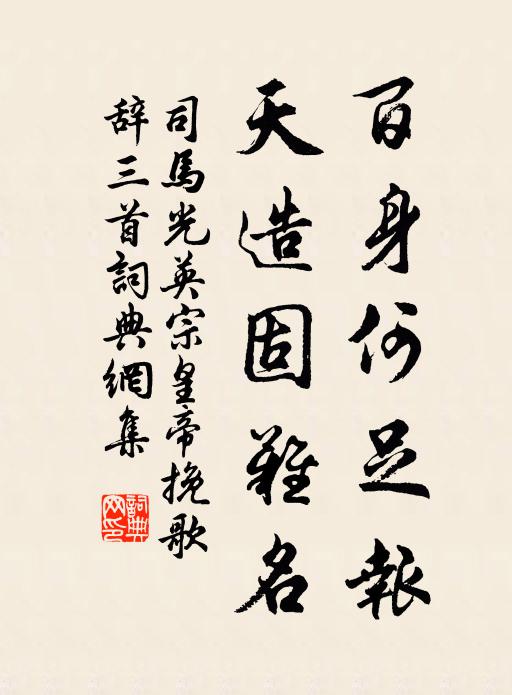 百身何足報
天造固難名
司馬光英宗皇帝挽歌
辭三首詞典網集
詞典網印